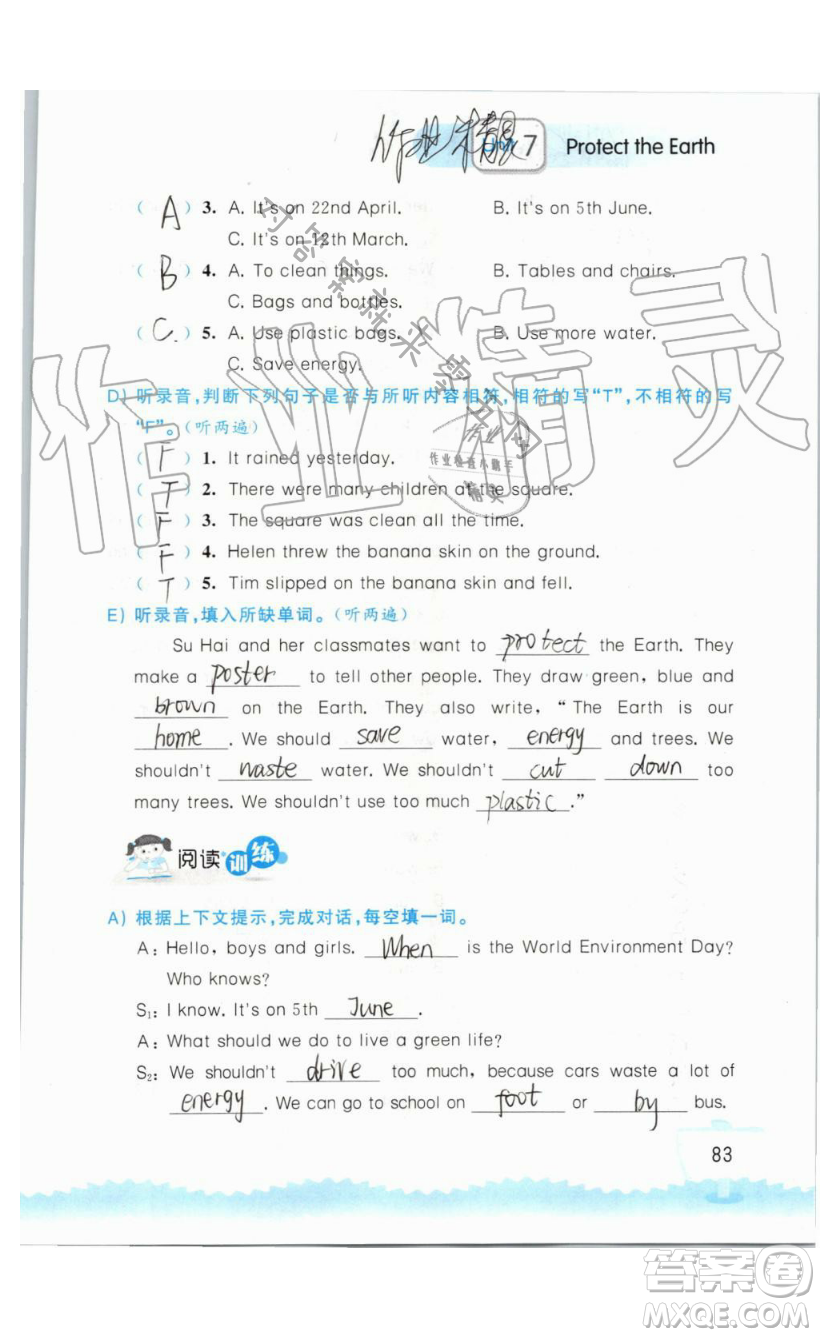 作业精灵
Unit 7 Protect the Earth
( A ) 3. A. It's on 22nd April. B. It's on 5th June.
C. It's on 12th March.
( B ) 4. A. To clean things. B. Tables and chairs.
C. Bags and bottles.
( C ) 5. A. Use plastic bags. B. Use more water.
C. Save energy.
D) 听录音,判断下列句子是否与所听内容相符,相符的写“T”,不相符的写
“F”。(听两遍)
( F ) 1. It rained yesterday.
( T ) 2. There were many children at the square.
( F ) 3. The square was clean all the time.
( F ) 4. Helen threw the banana skin on the ground.
( T ) 5. Tim slipped on the banana skin and fell.
E) 听录音,填入所缺单词。(听两遍)
Su Hai and her classmates want to protect the Earth. They
make a poster to tell other people. They draw green, blue and
brown on the Earth. They also write, “The Earth is our
home. We should save water, energy and trees. We
shouldn't waste water. We shouldn't cut down too
many trees. We shouldn't use too much plastic.”
阅读训练
A) 根据上下文提示,完成对话,每空填一词。
A: Hello, boys and girls. When is the World Environment Day?
Who knows?
S1: I know. It's on 5th June.
A: What should we do to live a green life?
S2: We shouldn't drive too much, because cars waste a lot of
energy. We can go to school on foot or by bus.
83
作业精灵
答案卷
MXQE.COM